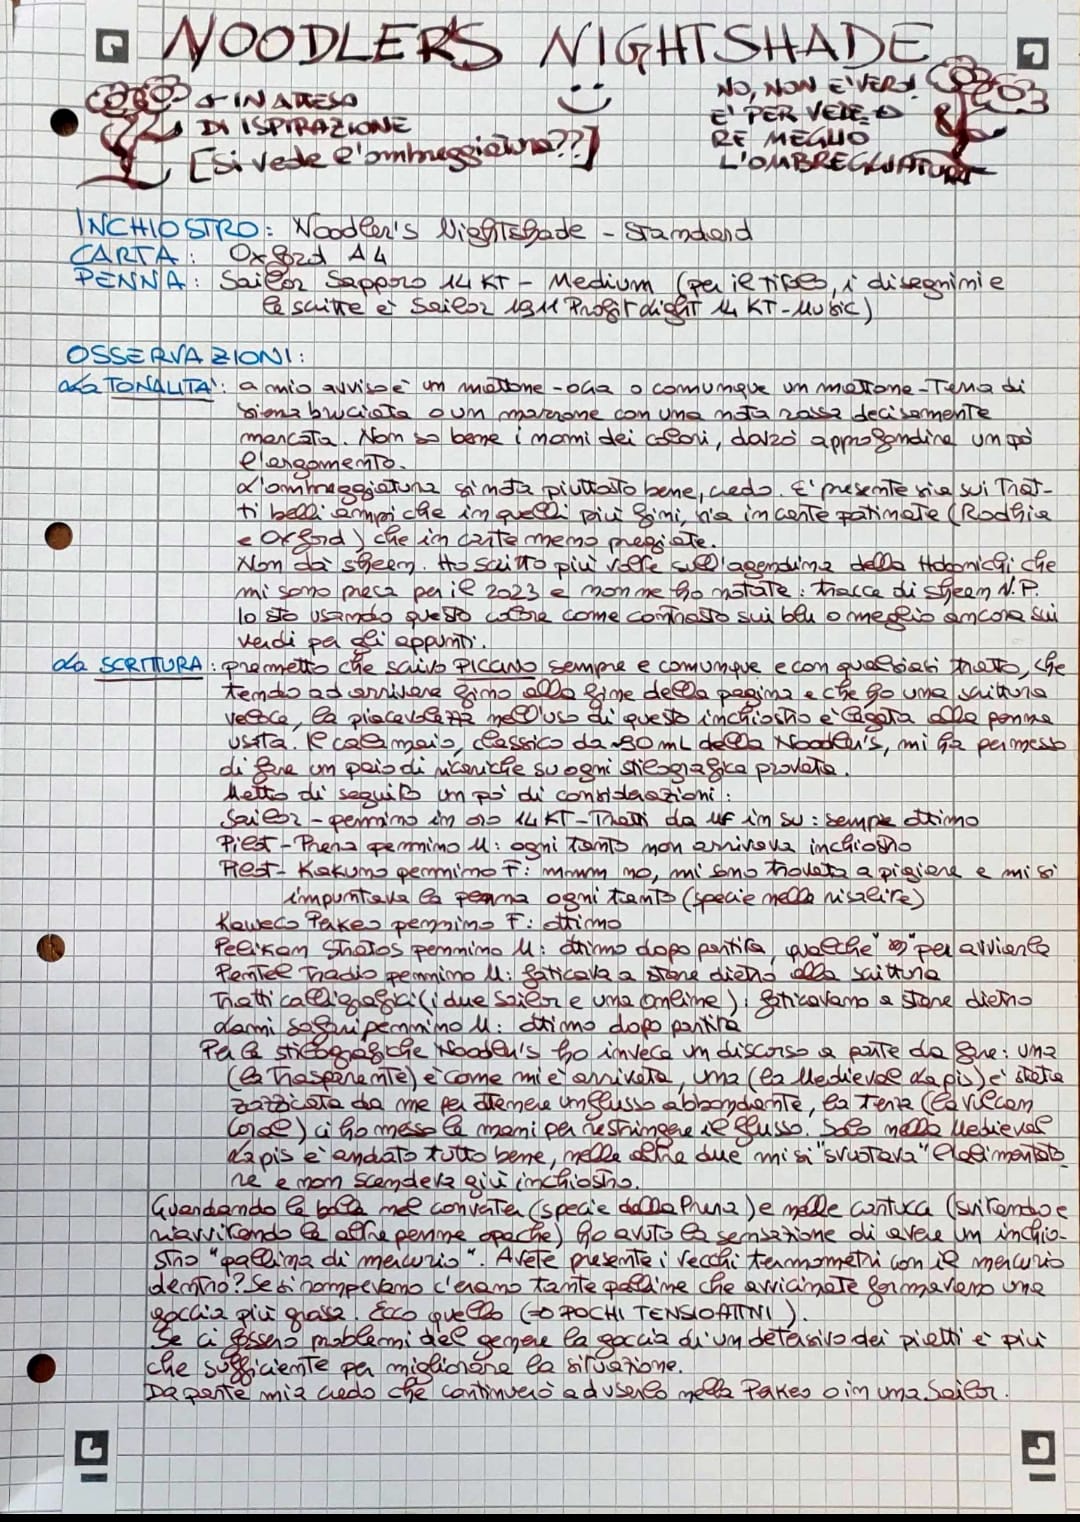 NOODLER'S NIGHTSHADE
→ IN ATTESA
DI ISPIRAZIONE
[Si vede l'ombreggiatura??]
NO, NON E' VERO!
E' PER VEDE-
RE MEGLIO
L'OMBREGGIATURA
INCHIOSTRO: Noodler's Nightshade - Standard
CARTA: Oxford A4
PENNA: Sailor Sapporo 14 KT - Medium (per il titolo, i disegnini e
le scritte è Sailor 1911 Profit Light 14 KT - Music)
OSSERVAZIONI:
La TONALITA': a mio avviso è un mattone-ocra o comunque un mattone-Terra di
siena bruciata o un marrone con una nota rossa decisamente
marcata. Non so bene i nomi dei colori, dovrò approfondire un pò
l'argomento.
L'ombreggiatura si nota piuttosto bene, credo. E' presente sia sui trat-
ti belli ampi che in quelli più fini, sia in carte patinate (Rodhia
e Oxford) che in carte meno pregiate.
Non dà sheen. Ho scritto più volte sull'agendina della Hobonichi che
mi sono presa per il 2023 e non ne ho notate: tracce di sheen N.P.
Io sto usando questo colore come contrasto sui blu o meglio ancora sui
verdi per gli appunti.
La SCRITTURA: premetto che scrivo PICCINO sempre e comunque e con qualsiasi tratto, che
tendo ad arrivare fino alla fine della pagina e che ho una scrittura
veloce, la piacevolezza nell'uso di questo inchiostro è legata alla penna
usata. Il calamaio, classico da ~80 mL della Noodler's, mi ha permesso
di fare un paio di ricariche su ogni stilografica provata.
Metto di seguito un pò di considerazioni:
Sailor - pennino in oro 14 KT - Tratti da MF in su: sempre ottimo
Pilot - Prera pennino M: ogni tanto non arrivava inchiostro
Pilot - Kakuno pennino F: mmm no, mi sono trovata a pigiare e mi si
impuntava la penna ogni tanto (specie nelle risalite)
Kaweco Perkeo pennino F: ottimo
Pelikan Stratos pennino M: ottimo dopo partita, qualche " " per avviarla
Pentel Tradio pennino M: faticava a stare dietro alla scrittura
Tratti calligrafici (i due Sailor e una Online): faticavano a stare dietro
Lami Safari pennino M: ottimo dopo partita
Per le stilografiche Noodler's ho invece un discorso a parte da fare: una
(la trasparente) è come mi è arrivata, una (la Medieval Lapis) è stata
zazzicata da me per ottenere un flusso abbondante, la terza (la vulcan
Coral) ci ho messo le mani per restringere il flusso. Solo nella Medieval
Lapis è andato tutto bene, nelle altre due mi si "svuotava" l'alimentato-
re e non scendeva giù inchiostro.
Guardando la bolla nel converter (specie della Prera) e nelle cartucce (svitando e
riavvitando le altre penne opache) ho avuto la sensazione di avere un inchio-
stro "pallina di mercurio". Avete presente i vecchi termometri con il mercurio
dentro? Se si rompevano c'erano tante palline che avvicinate formavano una
goccia più grossa. Ecco quello (→ POCHI TENSIOATTIVI).
Se ci fossero problemi del genere la goccia di un detersivo dei piatti è più
che sufficiente per migliorare la situazione.
Da parte mia credo che continuerò ad usarlo nella Perkeo o in una Sailor.